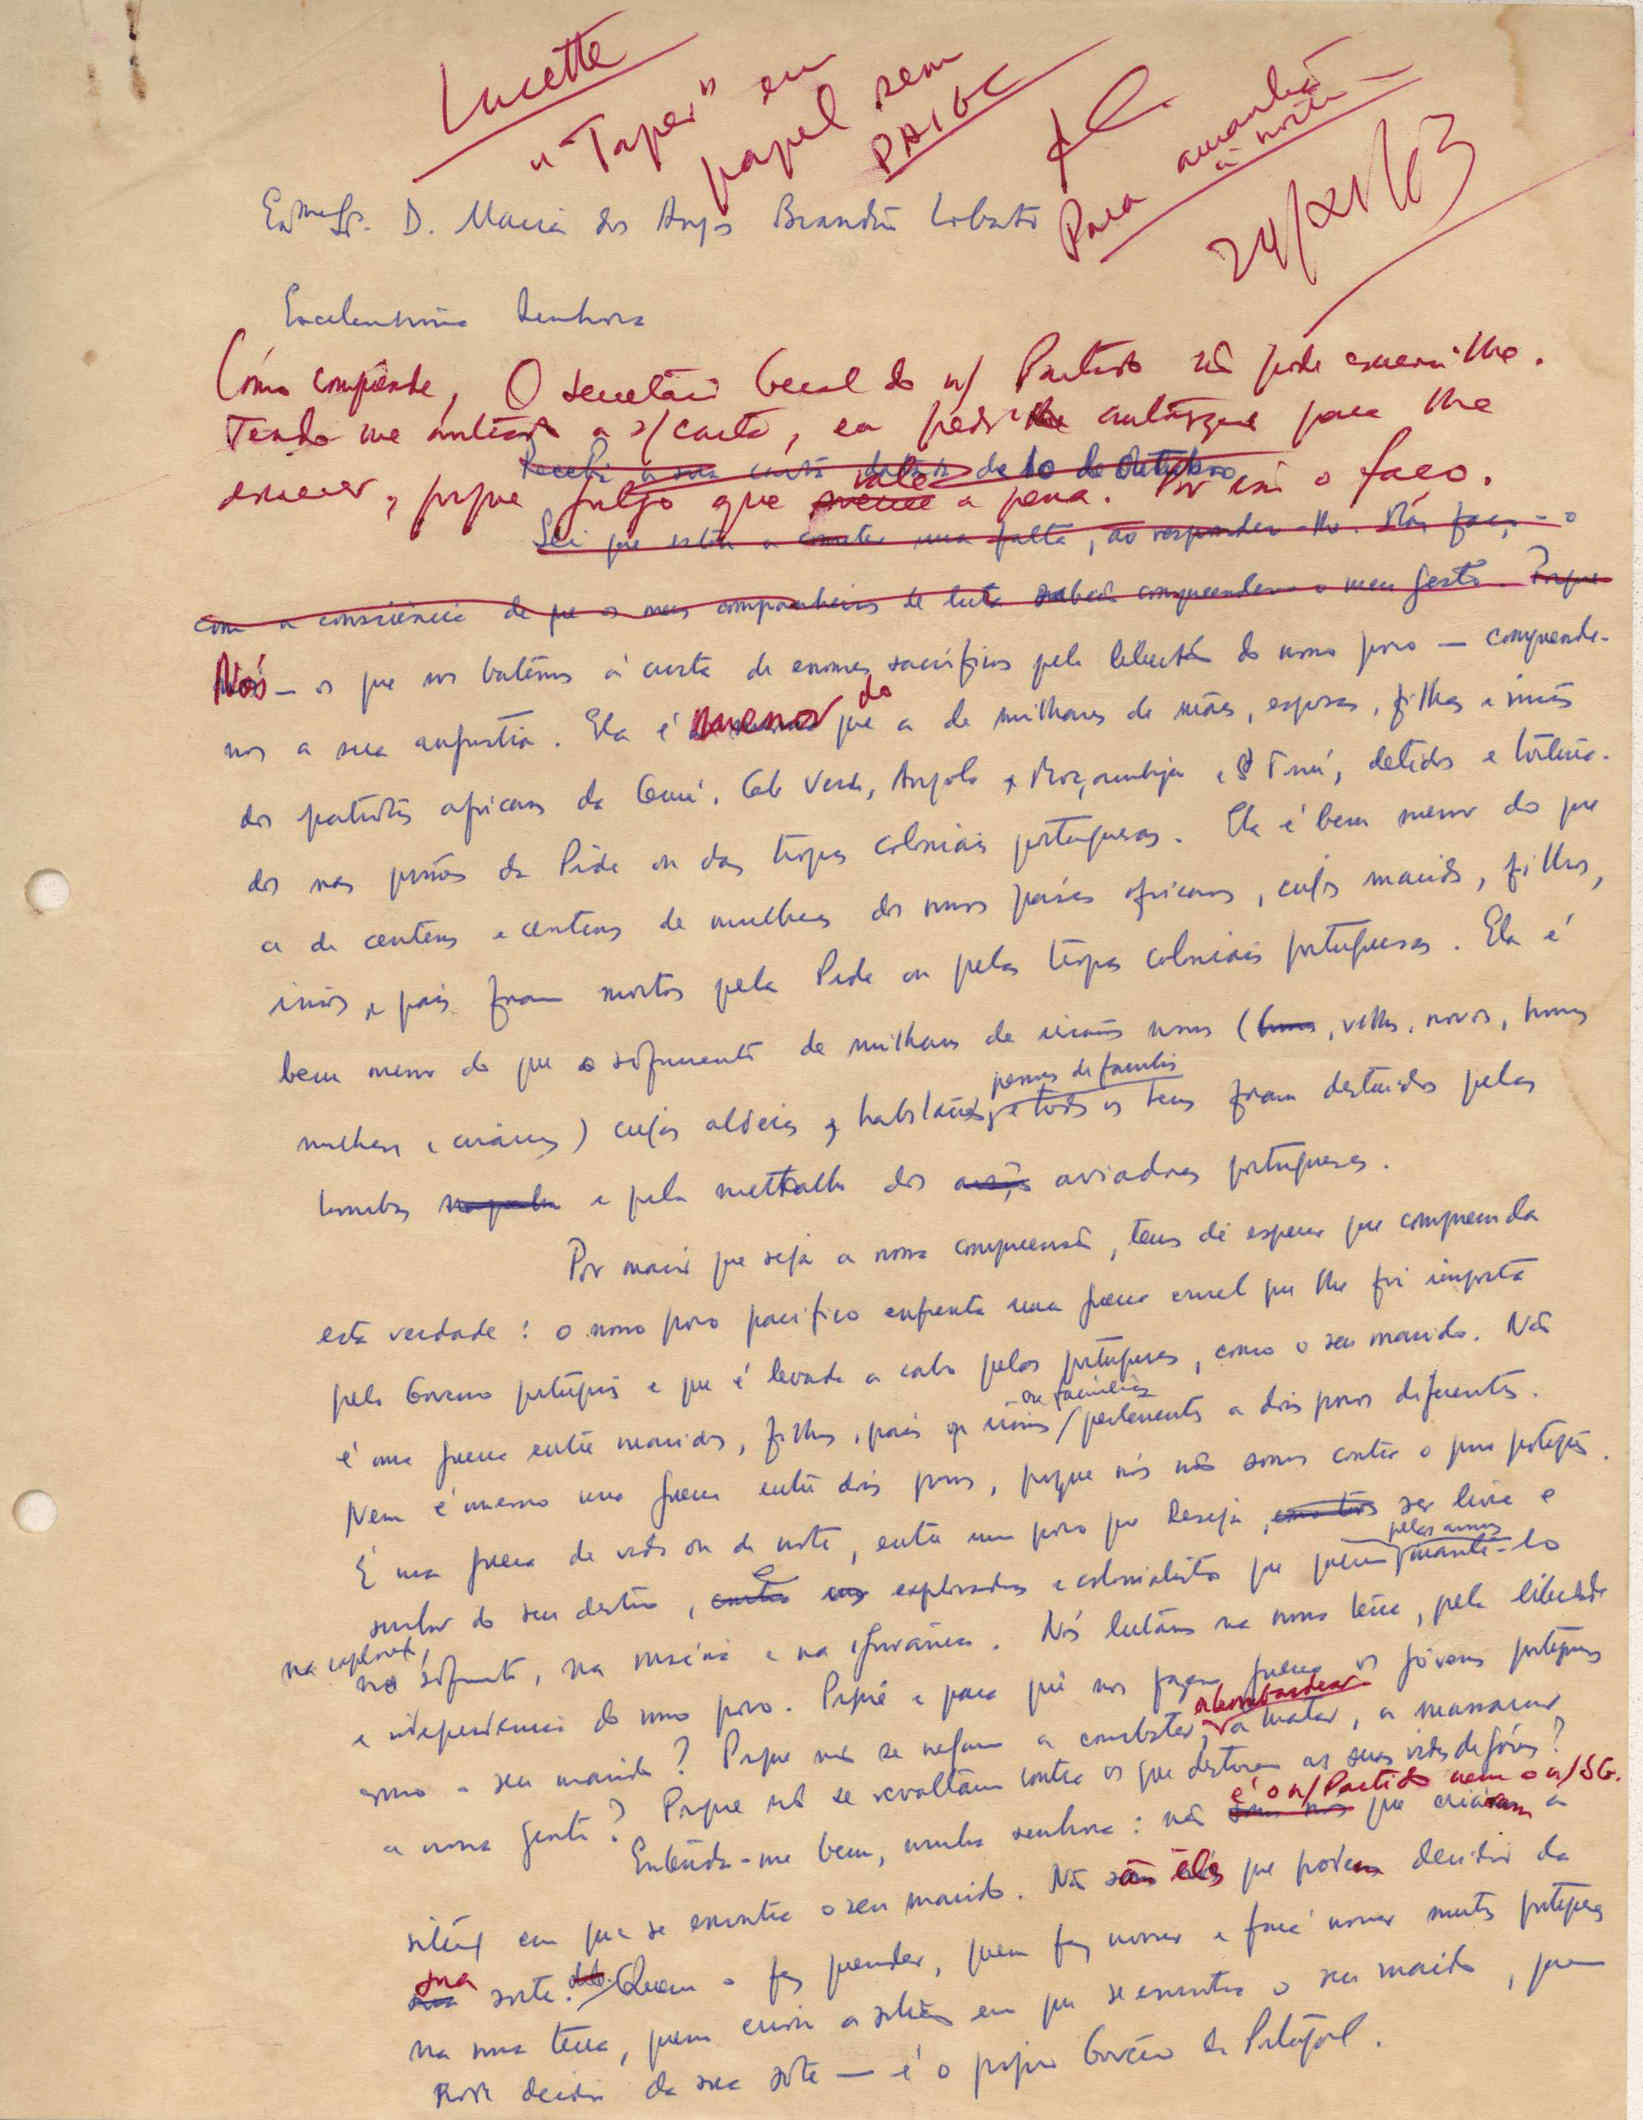 Lucette
"Taper" em
papel sem
PAIGC
Para amanhã
à noite
24/XI/63
Exma Sra. D. Maria dos Anjos Brandão Lobato
Excelentíssima Senhora
Como compreende, O Secretário Geral do n/ Partido não pode escrever-lhe.
Tendo me a s/ carta, eu pedi autorização para lhe
escrever, porque julgo que vale a pena. Por isso o faço.
Recebi a sua carta datada de 10 de Outubro
Sei que estou a cometer uma falta, ao responder-lhe. Mas faço-o
com a consciência de que os meus companheiros de luta saberão compreender o meu gesto. Porque
Nós — os que nos batemos à custa de enormes sacrifícios pela libertação do nosso povo — compreende-
mos a sua angústia. Ela é menor do que a de milhares de mães, esposas, filhas e irmãs
dos patriotas africanos da Guiné, Cabo Verde, Angola, Moçambique e S. Tomé, detidos e tortura-
dos nas prisões da Pide ou das tropas coloniais portuguesas. Ela é bem menor do que
a de centenas e centenas de mulheres dos nossos países africanos, cujos maridos, filhos,
irmãos e pais foram mortos pela Pide ou pelas tropas coloniais portuguesas. Ela é
bem menor do que o sofrimento de milhares de irmãos nossos (homens, velhos, novos, homens
mulheres e crianças) cujas aldeias, habitações, e todos os bens foram destruídos pelas
pessoas de família
bombas e pela metralha dos aviões aviadores portugueses.
Por maior que seja a nossa compreensão, temos de esperar que compreenda
esta verdade: o nosso povo pacífico enfrenta uma guerra cruel que lhe foi imposta
pelo Governo português e que é levada a cabo pelos portugueses, como o seu marido. Não
é uma guerra entre maridos, filhos, pais ou irmãos / pertencentes a dois povos diferentes.
ou famílias
Nem é mesmo uma guerra entre dois povos, porque nós não somos contra o povo português.
É uma guerra de vida ou de morte, entre um povo que deseja ser livre e
senhor do seu destino, e exploradores e colonialistas que querem mantê-lo
pelas armas
na exploração,
no sofrimento, na miséria e na ignorância. Nós lutamos na nossa terra, pela liberdade
e independência do nosso povo. Porquê e para quê nos fazem guerra os jóvens portugueses
como o seu marido? Porque não se negam a combater, a bombardear a matar, a massacrar
a nossa gente? Porque não se revoltam contra os que destroem as suas vidas de jóvens?
Entenda-me bem, minha senhora: não é o n/ Partido nem o n/ SG. que criaram a
situação em que se encontra o seu marido. Não são êles que podem decidir da
sua sorte. Quem o fez prender, quem fez morrer e fará morrer muitos portugueses
na nossa terra, quem criou a situação em que se encontra o seu marido, quem
pode decidir da sua sorte — é o próprio Governo de Portugal.